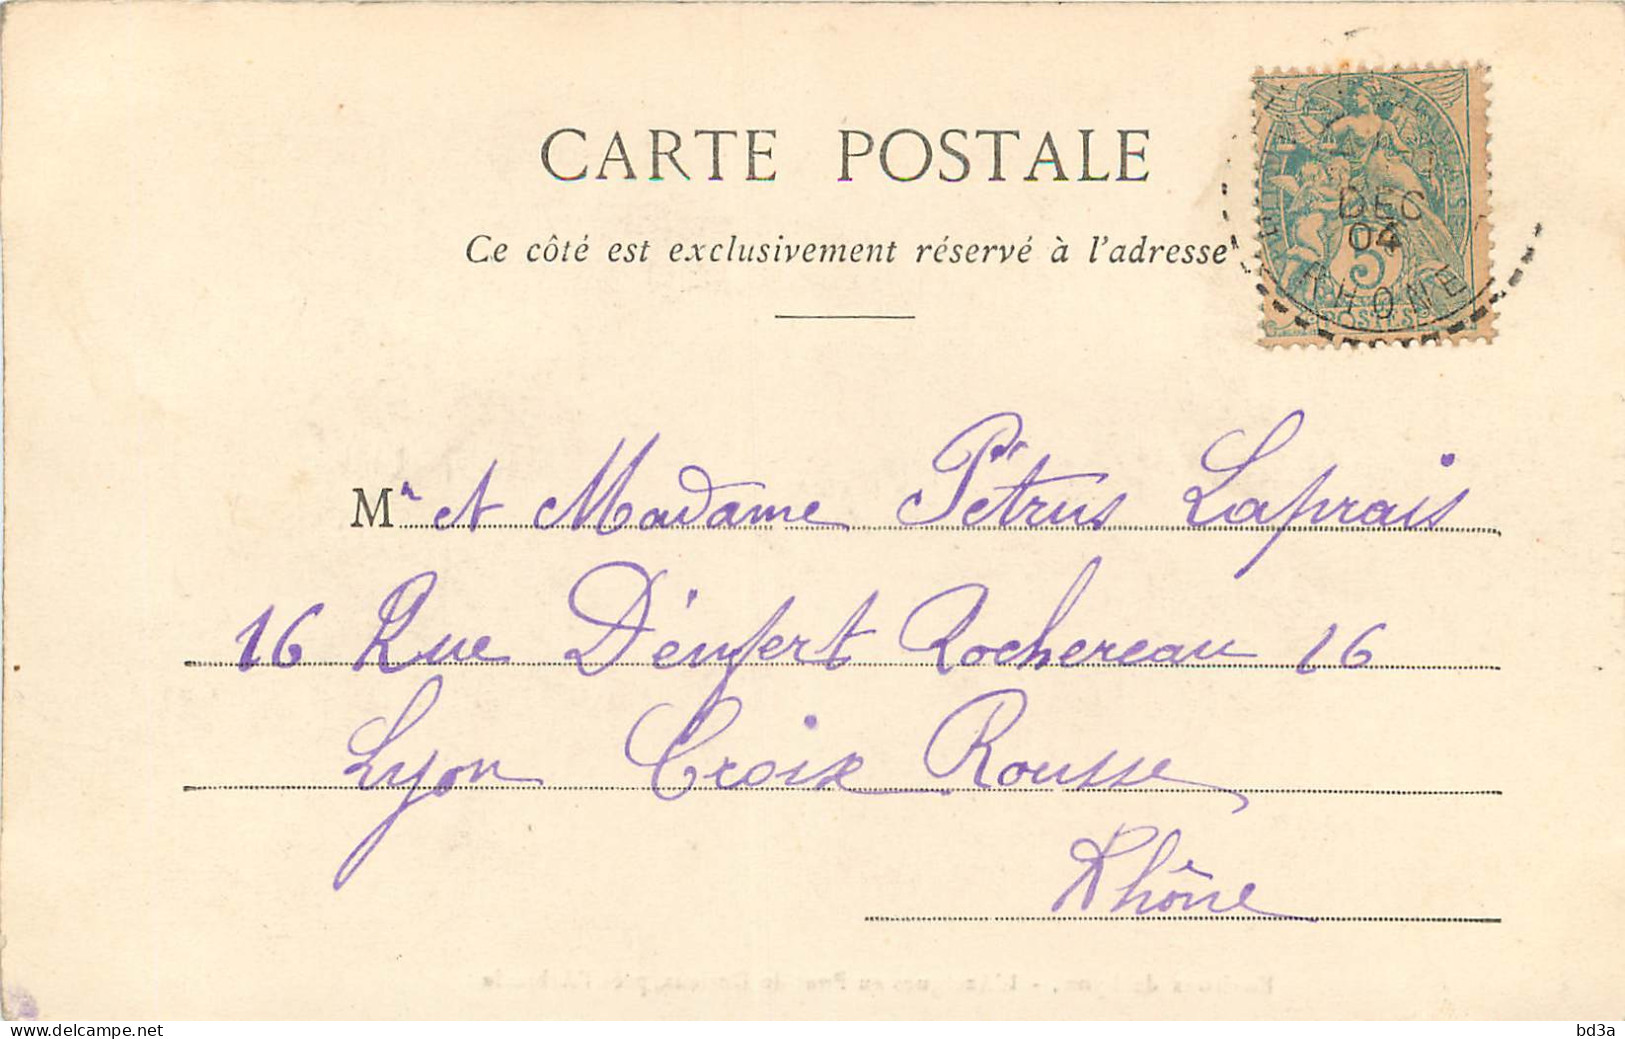 CARTE POSTALE
Ce côté est exclusivement réservé à l'adresse
DEC
04
RHONE
5
POSTES
Mr et Madame Pétrus Laprais
16 Rue Dénfert Rochereau 16
Lyon Croix Rousse
Rhône
bd3a